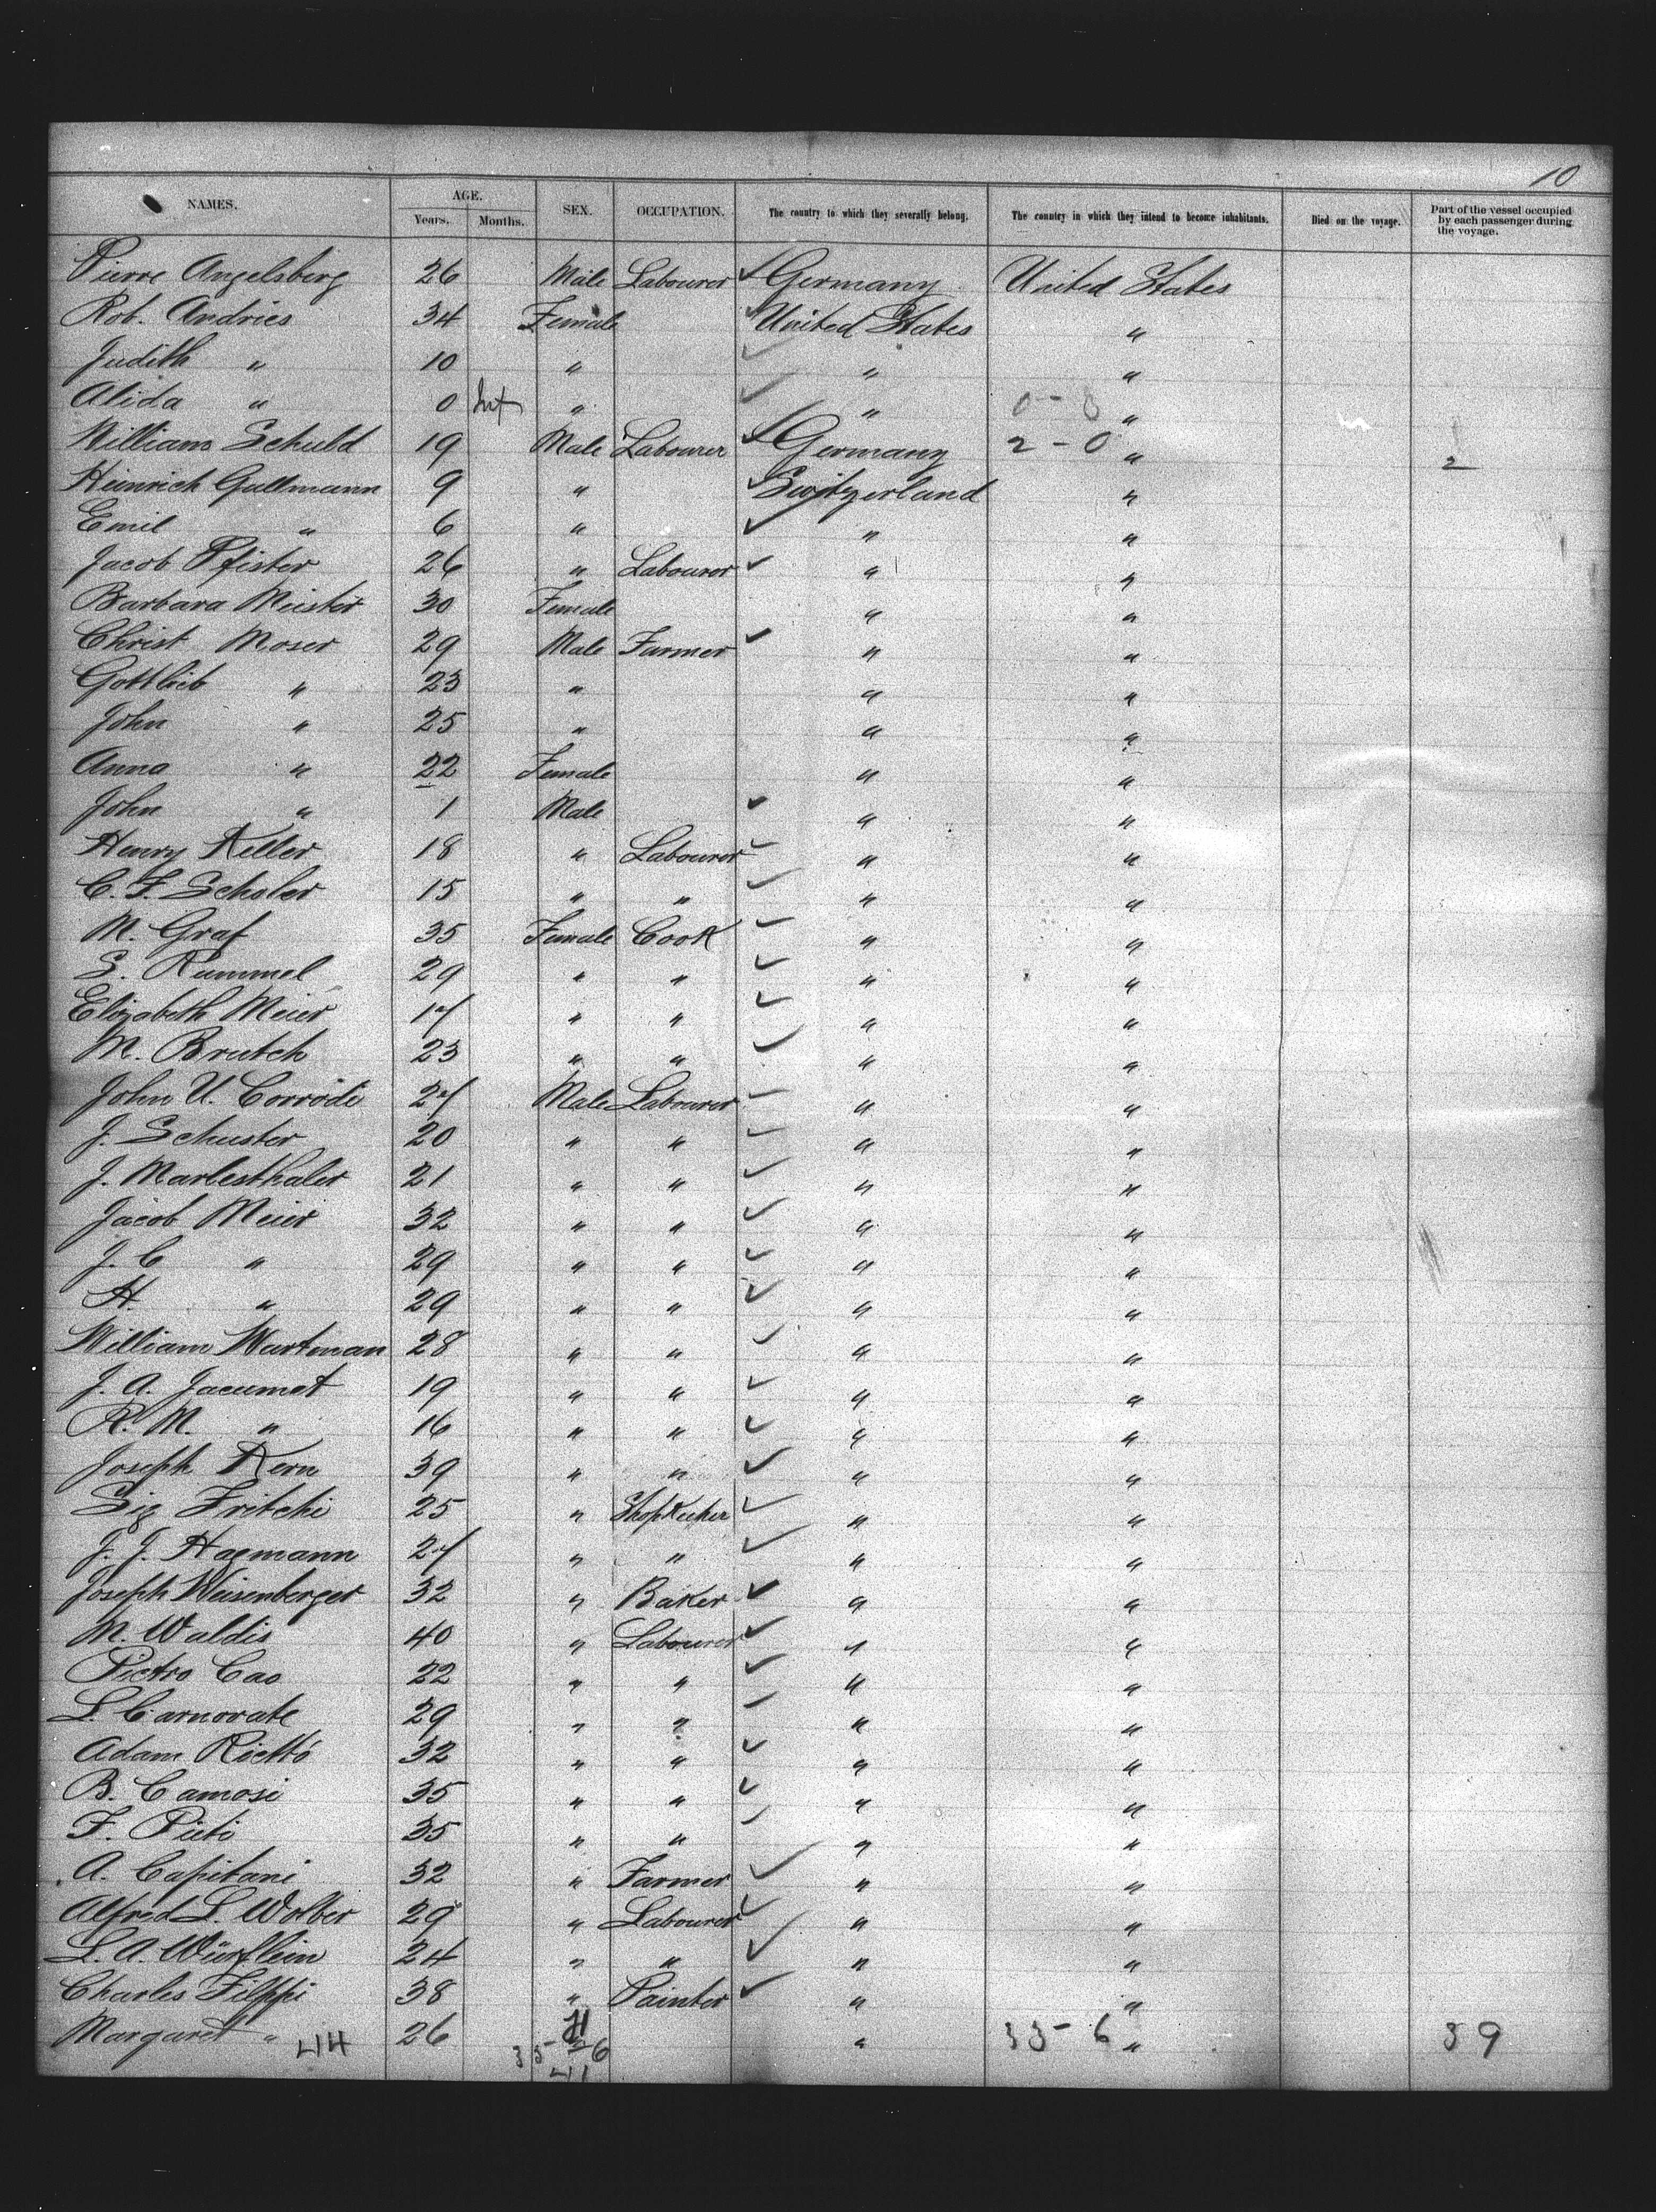 10
NAMES. AGE. Years. Months. SEX. OCCUPATION. The country to which they severally belong. The country in which they intend to become inhabitants. Died on the voyage. Part of the vessel occupied by each passenger during the voyage.
Pierre Angelsberg 26 Male Labourer Germany United States
Rob. Andries 34 Female United States "
Judith " 10 " " "
Alida " 0 Inf " " 0-3 "
William Schuld 19 Male Labourer Germany 2-0 " 2
Heinrich Gullmann 9 " Switzerland "
Emil " 6 " " "
Jacob Pfister 26 " Labourer " "
Barbara Meister 30 Female " "
Christ Moser 29 Male Farmer " "
Gottlieb " 23 " " "
John " 25 " " "
Anna " 22 Female " "
John " 1 Male " "
Henry Keller 18 " Labourer " "
C. F. Scholer 15 " " " "
M. Graf 35 Female Cook " "
S. Rummel 29 " " " "
Elizabeth Meier 17 " " " "
M. Brutch 23 " " " "
John U. Corrodi 27 Male Labourer " "
J. Schuster 20 " " " "
J. Marlesthaler 21 " " " "
Jacob Meier 32 " " " "
J. C " 29 " " " "
H. " 29 " " " "
William Wartman 28 " " " "
J. A. Jacumet 19 " " " "
R. M. " 16 " " " "
Joseph Kern 39 " " " "
Sig Fritchi 25 " ShopKeeker " "
J. J. Hagmann 27 " " " "
Joseph Weisenberger 32 " Baker " "
M. Waldis 40 " Labourer " "
Pietro Cao 22 " " " "
L. Carnovate 29 " " " "
Adam Rietto 32 " " " "
B. Camosi 35 " " " "
F. Pieti 35 " " " "
A. Capitani 32 " Farmer " "
Alfred L. Wolber 29 " Labourer " "
L. A. Würflein 24 " " " "
Charles Filppi 38 " Painter " "
Margaret " 44 26 " 33-6 " 39
41